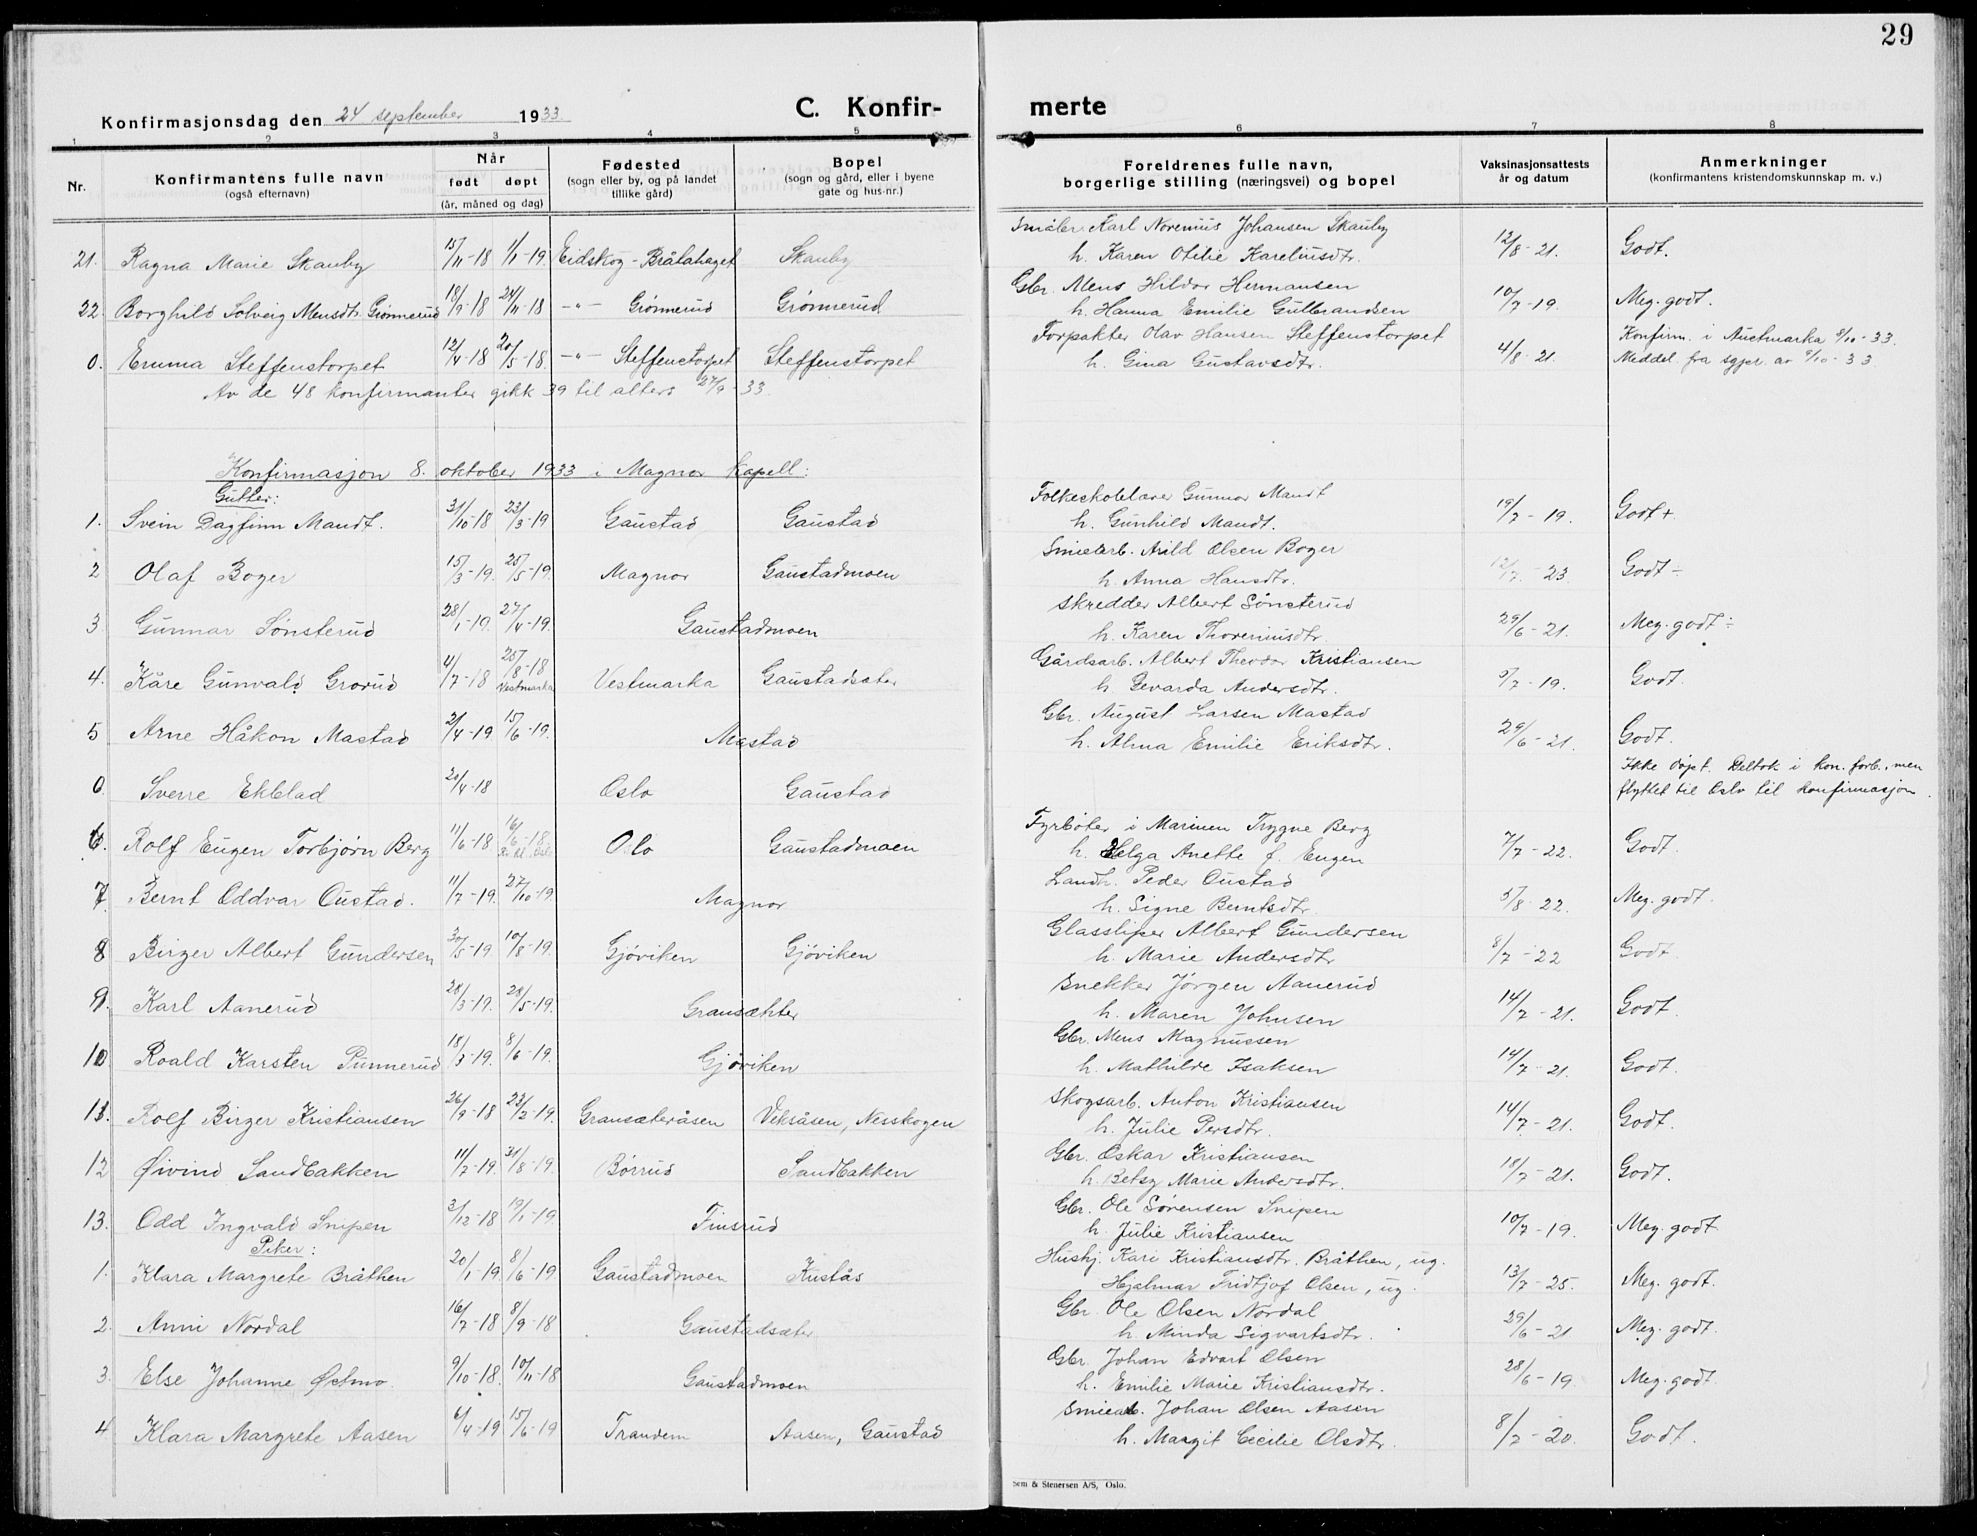 29
Konfirmasjonsdag den 24 september 1933
C. Konfir-
merte
1 2 3 4 5 6 7 8
Nr.
Konfirmantens fulle navn
(også efternavn)
Når
født døpt
(år, måned og dag)
Fødested
(sogn eller by, og på landet
tillike gård)
Bopel
(sogn og gård, eller i byene
gate og hus-nr.)
Foreldrenes fulle navn,
borgerlige stilling (næringsvei) og bopel
Vaksinasjonsattests
år og datum
Anmerkninger
(konfirmantens kristendomskunnskap m. v.)
21. Ragna Marie Skauby 15/11-18 1/1-19. Eidskog - Bråtahaget Skauby Småbr. Karl Norenius Johansen Skauby 12/8-21. Godt.
h. Karen Otilie Kareliusdtr.
22. Borghild Solveig Mensdtr. Grønnerud 18/9-18 24/11-18 -"- Grønnerud Grønnerud Gbr. Mens Hildor Hermansen 10/7-19. Meg. godt.
h. Hanna Emilie Gulbrandsen
0. Emma Steffenstorpet 12/4-18 20/5-18. -"- Steffenstorpet Steffenstorpet Forpakter Olav Hansen Steffenstorpet 4/8-21. Konfirm. i Austmarka 8/10-33.
h. Gina Gustavsdtr. Meddel. fra sgpr. av 9/10-33
Av de 48 konfirmanter gikk 39 til alters 24/9-33.
Konfirmasjon 8. oktober 1933 i Magnor Kapell:
Gutter:
1. Svein Dagfinn Mandt. 31/10-18 23/3-19 Gaustad Gaustad Folkeskolelærer Gunnar Mandt 19/7-19. Godt+
h. Gunhild Mandt.
2 Olaf Boger 15/3-19. 25/5-19. Magnor Gaustadmoen Arild Olsen Boger 12/7-23 Godt÷
h. Anna Hansdtr.
3 Gunnar Sønsterud 28/1-19. 27/4-19. Gaustadmoen Skredder Albert Sønsterud 29/6-21. Meg. godt÷
h. Karen Thoreniusdtr.
4. Kåre Gunvald Grorud 4/7-18 25/8-18 Vestmarka Vestmarka Gaustadsæter Gårdsarb. Albert Theodor Kristiansen 5/7-19. Godt.
h. Gevarda Andersdtr.
5 Arne Håkon Mastad 2/4-19 15/6-19. Mastad Gbr. August Larsen Mastad 29/6-21. Godt.
h. Alma Emilie Eriksdtr.
0 Sverre Ekblad 20/4-18 Oslo Gaustad Ikke døpt. Deltok i kon. forb., men
flyttet til Oslo til konfirmasjon.
6. Rolf Eugen Torbjørn Berg 11/6-18 16/6-18 Oslo Gaustadmoen Fyrbøter i Marinen Trygve Berg 7/7-22. Godt.
h. Helga Anette f. Eugen
7. Bernt Oddvar Oustad. 11/7-19. 27/10-19. Magnor Landh. Peder Oustad 5/8-22. Meg. godt.
h. Signe Berntsdtr.
8 Birger Albert Gundersen 30/5-19. 10/8-19. Gjøviken Gjøviken Glassliper Albert Gundersen 8/7-22 Godt.
h. Marie Andersdtr
9. Karl Aanerud 28/3-19. 28/5-19. Gransæter Snekker Jørgen Aanerud 14/7-21. Godt.
h. Maren Johnsen
10 Roald Karsten Punnerud 18/3-19. 8/6-19. Gjøviken Gbr. Mens Magnussen 14/7-21. Godt.
h. Mathilde Isaksen
11. Rolf Birger Kristiansen 26/9-18 23/2-19. Gransæteråsen Veksåsen, Nesskogen Skogsarb. Anton Kristiansen 14/7-21. Godt.
h. Julie Persdtr.
12 Øivind Sandbakken 11/7-19. 31/8-19. Børrud Sandbakken Gbr. Oskar Kristiansen 18/7-21. Godt.
h. Betsy Marie Andersdtr.
13. Odd Ingvald Snipen 3/12-18 19/1-19. Finsrud Gbr. Ole Sørensen Snipen 10/7-19. Meg. godt
h. Julie Kristiansen
Piker:
1. Klara Margrete Bråthen 20/1-19. 8/6-19 Gaustadmoen Kustås Hushj. Kari Kristiansdtr. Bråthen, ug. 13/7-25. Meg. godt.
Hjalmar Fridtjof Olsen, ug.
2. Anni Nordal 16/7-18 8/9-18 Gaustadsæter Gbr. Ole Olsen Nordal 29/6-21 Meg. godt.
h. Minda Sigvartsdtr.
3. Else Johanne Østmo 9/10-18. 10/11-18 Gaustadmoen Gbr. Johan Edvart Olsen 28/6-19. Meg. godt.
h. Emilie Marie Kristiansdtr.
4 Klara Margrete Aasen 6/4-19 15/6-19 Trandem Aasen, Gaustad Johan Olsen Aasen 8/7-20. Godt.
h. Margit Cecilie Olsdtr.
Sem & Stenersen A/S, Oslo.